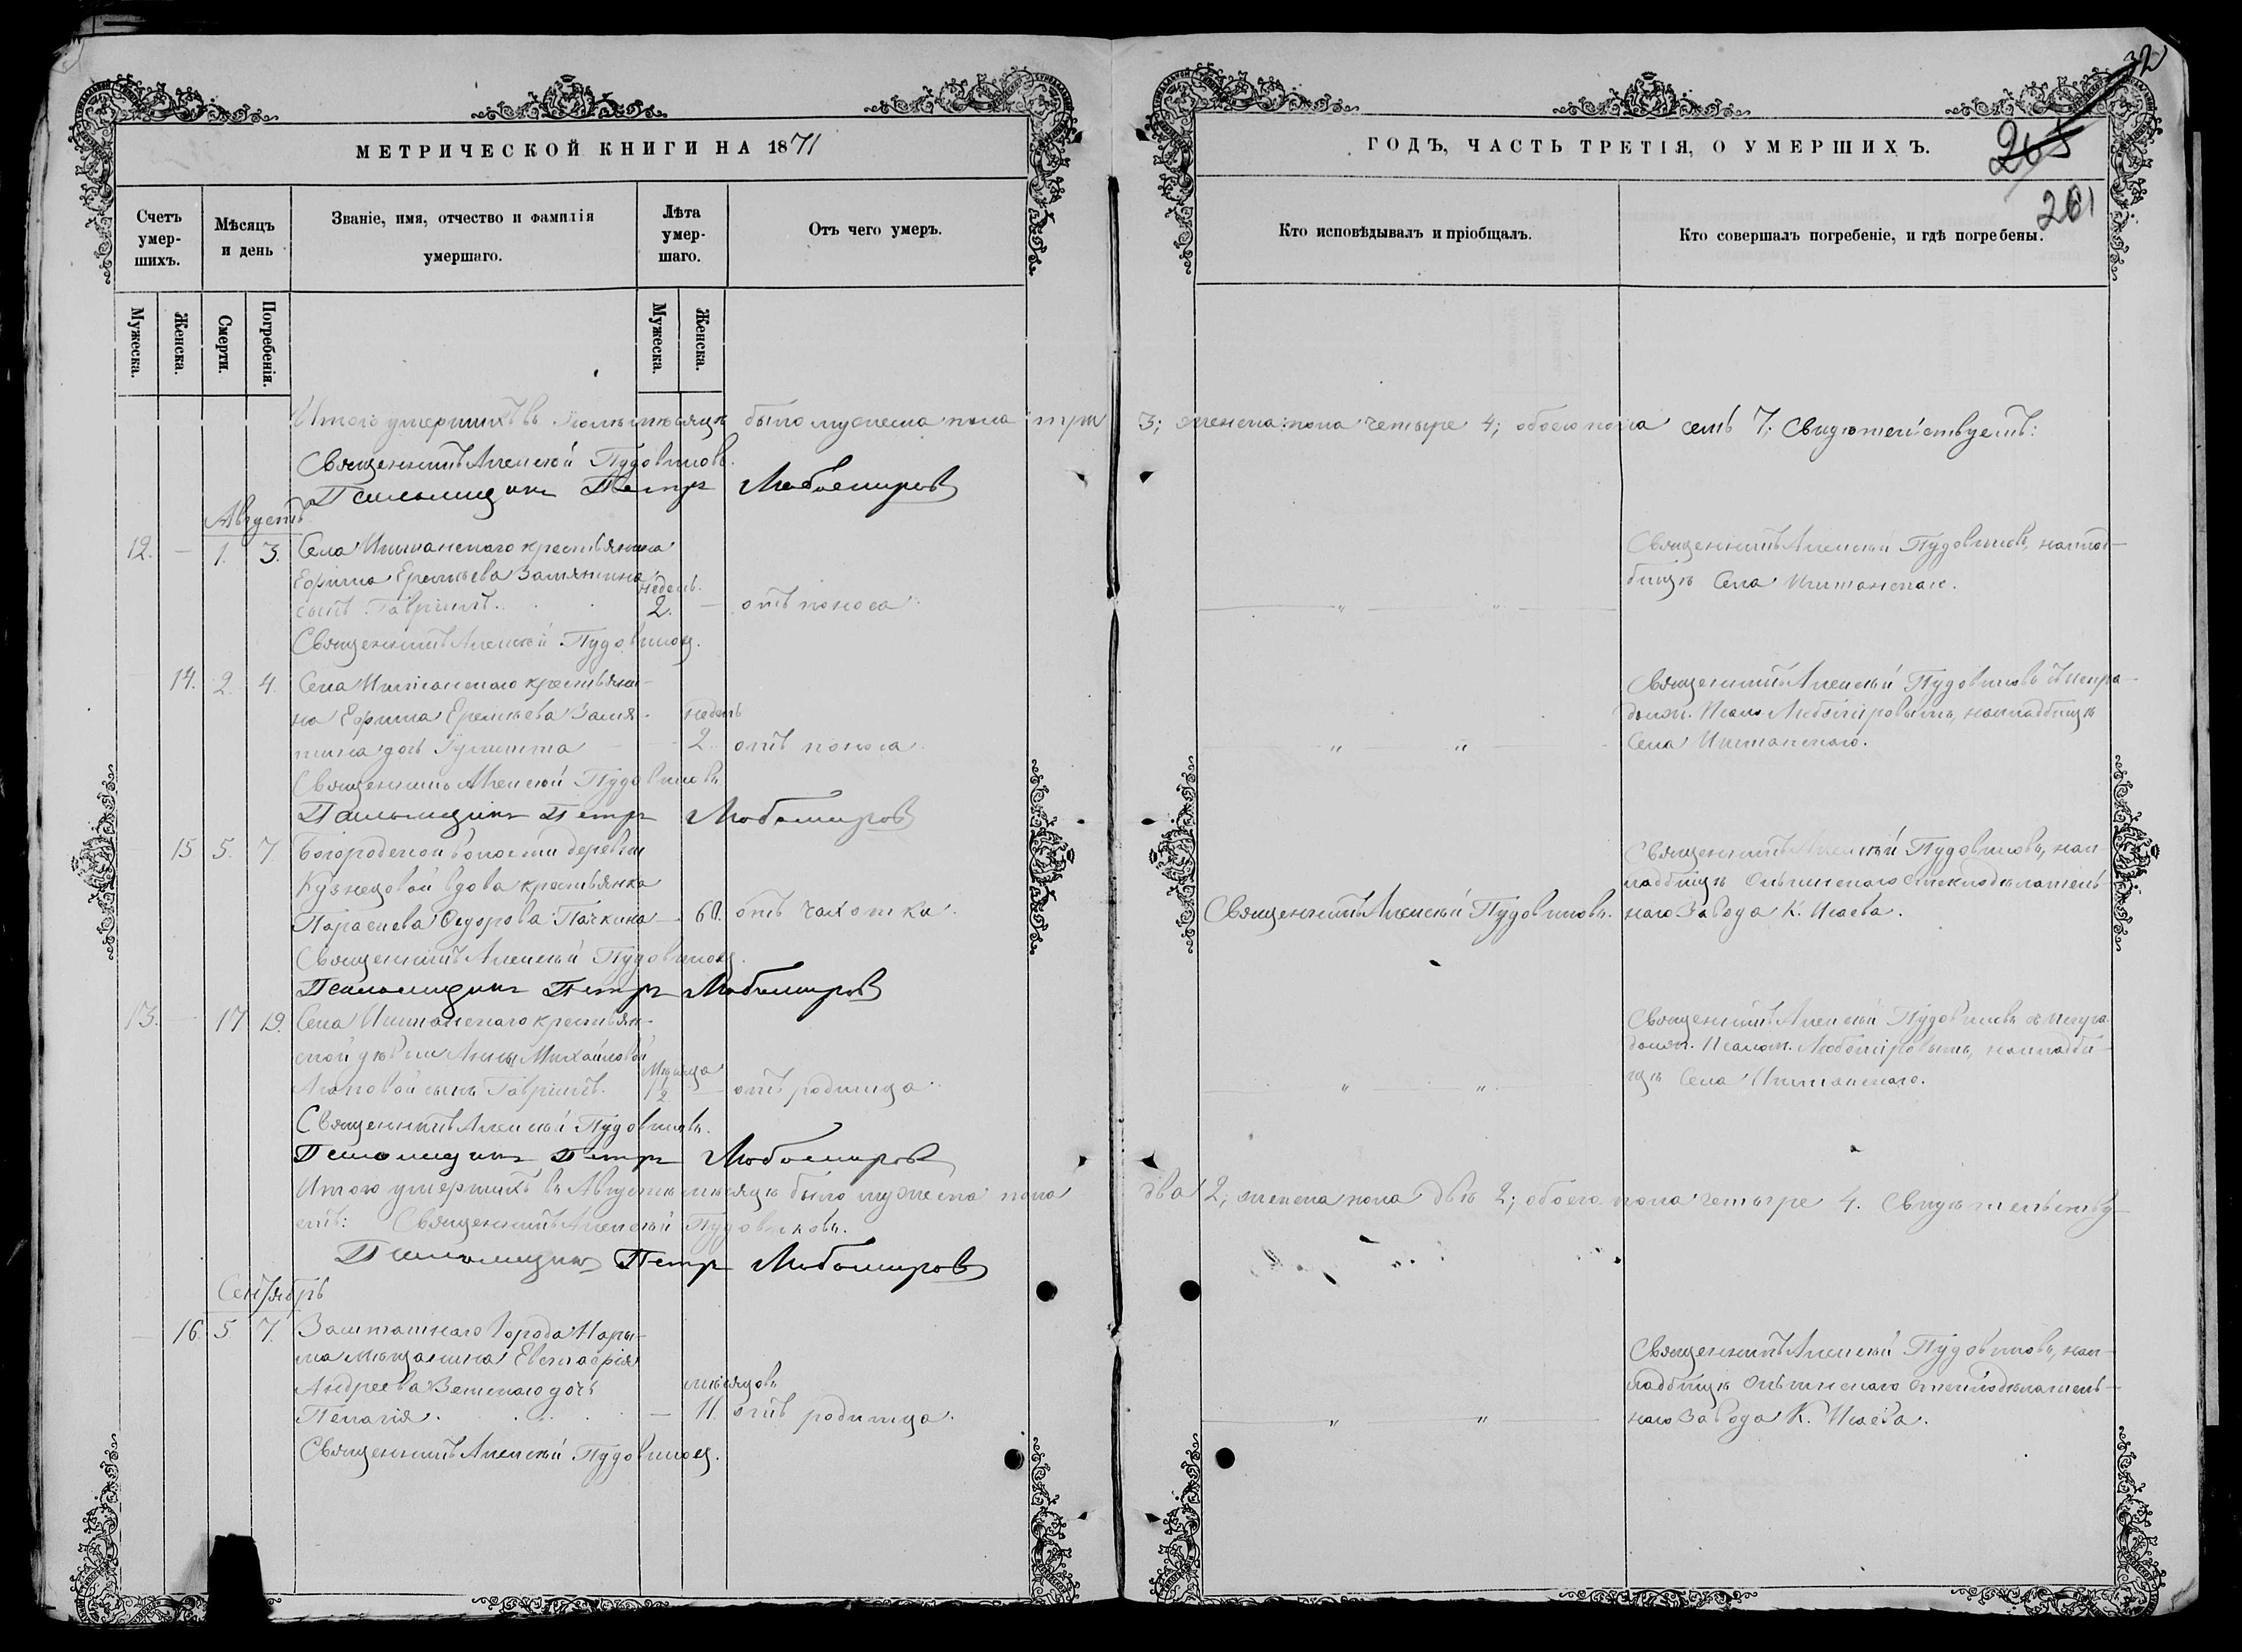 32
265
261
МЕТРИЧЕСКОЙ КНИГИ НА 1871
ГОДЪ, ЧАСТЬ ТРЕТІЯ, О УМЕРШИХЪ.
Счетъ умер-шихъ.
Мѣсяцъ и день
Званіе, имя, отчество и фамилія умершаго.
Лѣта умер-шаго.
Отъ чего умеръ.
Кто исповѣдывалъ и пріобщалъ.
Кто совершалъ погребеніе, и гдѣ погребены.
Мужеска.
Женска.
Смерти.
Погребенія.
Мужеска.
Женска.
Итого умершихъ въ Іюлѣ мѣсяцѣ было мужеска пола три 3; женска пола четыре 4; обоего пола семь 7. Свидѣтельствуетъ:
Священникъ Алексѣй Пудовиковъ.
Псаломщикъ Петръ Любомировъ
Августъ
12. — 1. 3. Села Иштанскаго крестьянина
Ефима Еремѣева Замятина
сынъ Гавріилъ. недѣль 2. — отъ поноса
Священникъ Алексѣй Пудовиковъ, на клад-
бищѣ Села Иштанскаго.
Священникъ Алексѣй Пудовиковъ.
14. 2. 4. Села Иштанскаго крестьяни-
на Ефима Еремѣева Замя-
тина дочь недѣль 2. отъ поноса.
Священникъ Алексѣй Пудовиковъ
Любомировымъ, на кладбищѣ
Села Иштанскаго.
Священникъ Алексѣй Пудовиковъ
Псаломщикъ Петръ Любомировъ
15. 5. 7. Богородской волости деревни
Кузнецовой вдова крестьянка
Параскева Ѳедорова Пачкина — 60. отъ чахотки.
Священникъ Алексѣй Пудовиковъ.
Священникъ Алексѣй Пудовиковъ, на к-
ладбищѣ Стеклодѣлатель-
наго Завода К. Исаева.
Священникъ Алексѣй Пудовиковъ.
Псаломщикъ Петръ Любомировъ
13. — 17 19. Села Иштанскаго крестьян-
ской дѣвки Анны Михайловой
сынъ Гавріилъ. Мѣсяца 1/2 — отъ родимца.
Священникъ Алексѣй Пудовиковъ
Любомировымъ, на кладби-
щѣ Села Иштанскаго.
Священникъ Алексѣй Пудовиковъ.
Псаломщикъ Петръ Любомировъ
Итого умершихъ въ Августѣ мѣсяцѣ было мужеска пола два 2, женска пола двѣ 2; обоего пола четыре 4. Свидѣтельству-
етъ: Священникъ Алексѣй Пудовиковъ.
Псаломщикъ Петръ Любомировъ
Сентябрь
— 16. 5 7. Заштатнаго Города Нары-
ма мѣщанина Евстафія
Андреева дочь
Пелагія. — мѣсяцовъ 11. отъ родимца.
Священникъ Алексѣй Пудовиковъ, на к-
ладбищѣ Стеклодѣлатель-
наго Завода К. Исаева.
Священникъ Алексѣй Пудовиковъ.